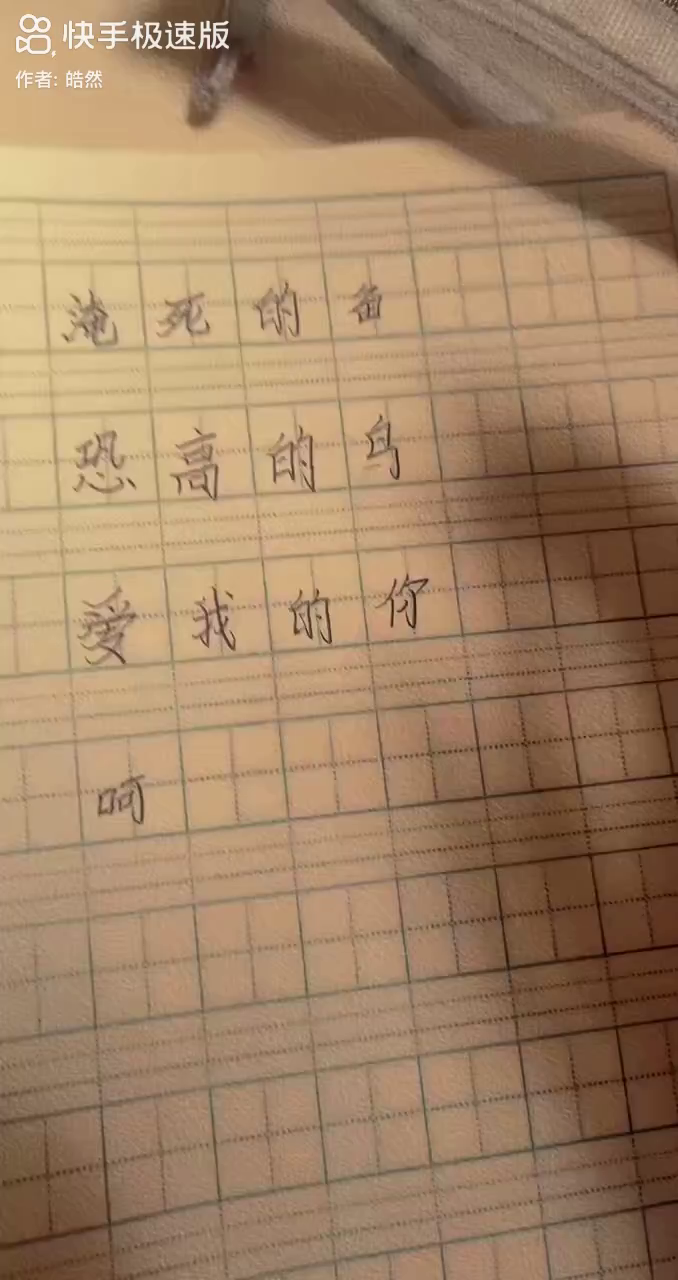 快手极速版
作者: 皓然
淹死的鱼
恐高的鸟
爱我的你
呵